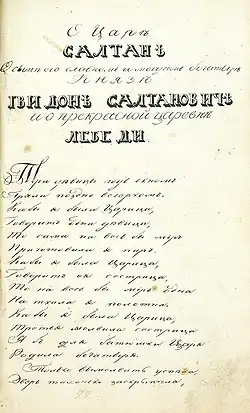 О Царѣ
САЛТАНѢ
О сынѣ его славномъ и могучемъ богатырѣ
КНЯЗѢ
ГВИДОНѢ САЛТАНОВИЧѢ
и о прекрасной царевнѣ
ЛЕБЕДИ.
Три дѣвицы подъ окномъ
Пряли поздно вечеркомъ.
Кабы я была Царица,
Говоритъ одна дѣвица
То сама на весь бы міръ
Приготовила я пиръ.
Кабы я была Царица,
Говоритъ ея сестрица,
То на весь бы міръ одна
Наткала я полотна.
Кабы я была Царица,
Третья молвила сестрица
Я бъ для батюшки Царя
Родила богатыря.
Только вымолвить успѣла,
Дверь тихонько заскрыпѣла,